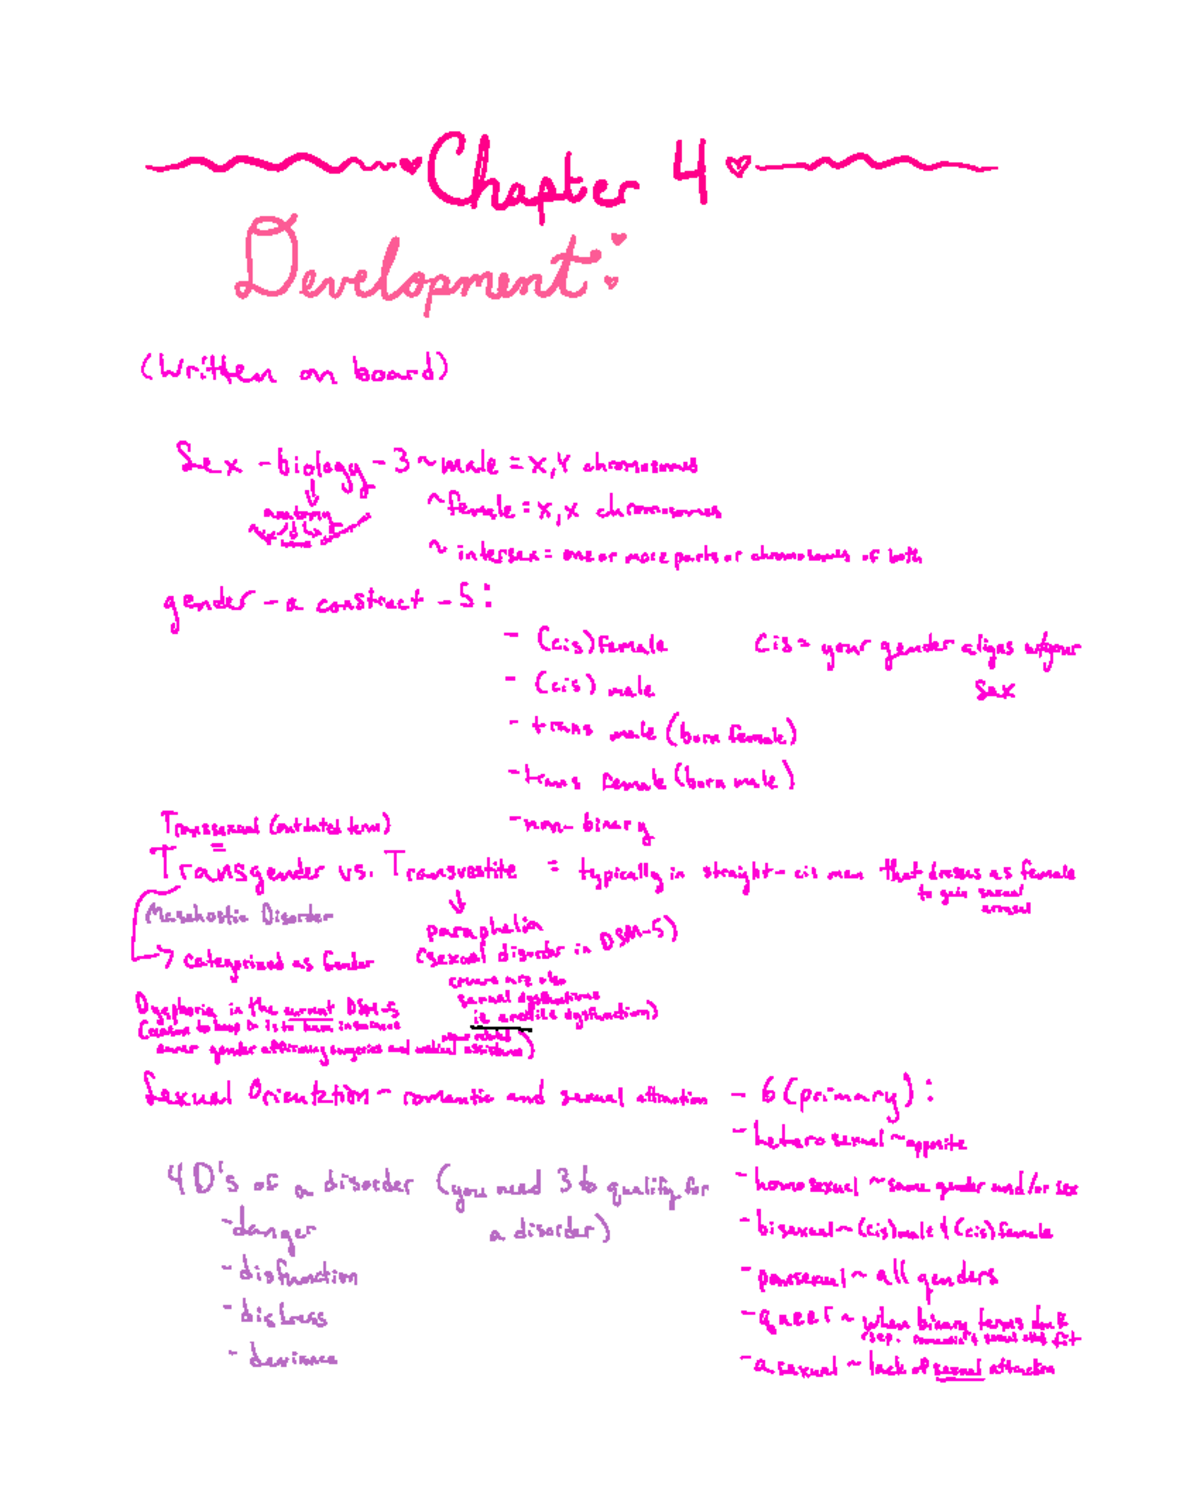 Chapter 4
Development
(Written on board)
Sex - biology - 3 ~ male = X,Y chromosomes
anatomy
~ female = X,X chromosomes
~ intersex = one or more parts or chromosomes of both
gender - a construct - 5:
- (cis) female
cis = your gender aligns w/your
sex
- (cis) male
- trans male (born female)
- trans female (born male)
- non-binary
Transsexual (outdated term)
Transgender vs. Transvestite = typically in straight-cis men that dresses as female
to gain sexual
arousal
Maschostic Disorder
paraphelia
(sexual disorder in DSM-5)
→ categorized as Gender
sexual dysfunctions
ie erectile dysfunction)
Dysphoria in the current DSM-5
(reason to keep it is to have insurance
cover gender affirming surgeries and medical assistance)
Sexual Orientation - romantic and sexual attraction - 6 (primary):
- heterosexual ~ opposite
- homosexual ~ same gender and/or sex
- bisexual ~ (cis) male & (cis) female
- pansexual ~ all genders
- queer ~ when binary terms don't
fit
- asexual ~ lack of sexual attraction
4 D's of a disorder (you need 3 to qualify for
a disorder)
- danger
- disfunction
- distress
- deviance